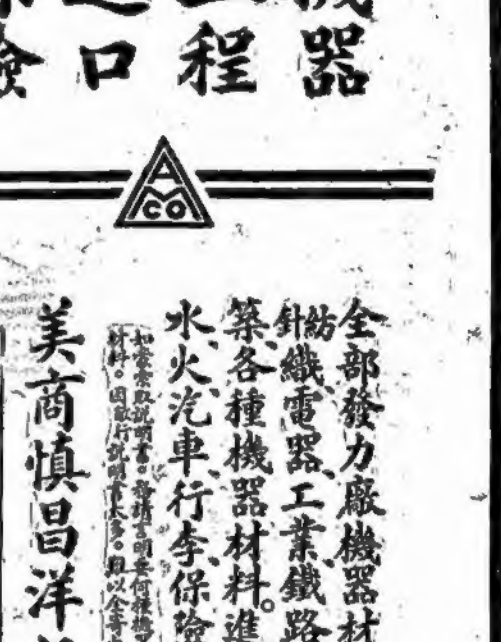 機器
工程
進口
險
AMCO
全部發力廠機器材
紡針織、電器、工業、鐵路
築、各種機器材料。進
水、火、汽車、行李、保險
如蒙索取說明書。務請言明要何種機
材料。因敝行說明書太多。難以全寄
美商慎昌洋